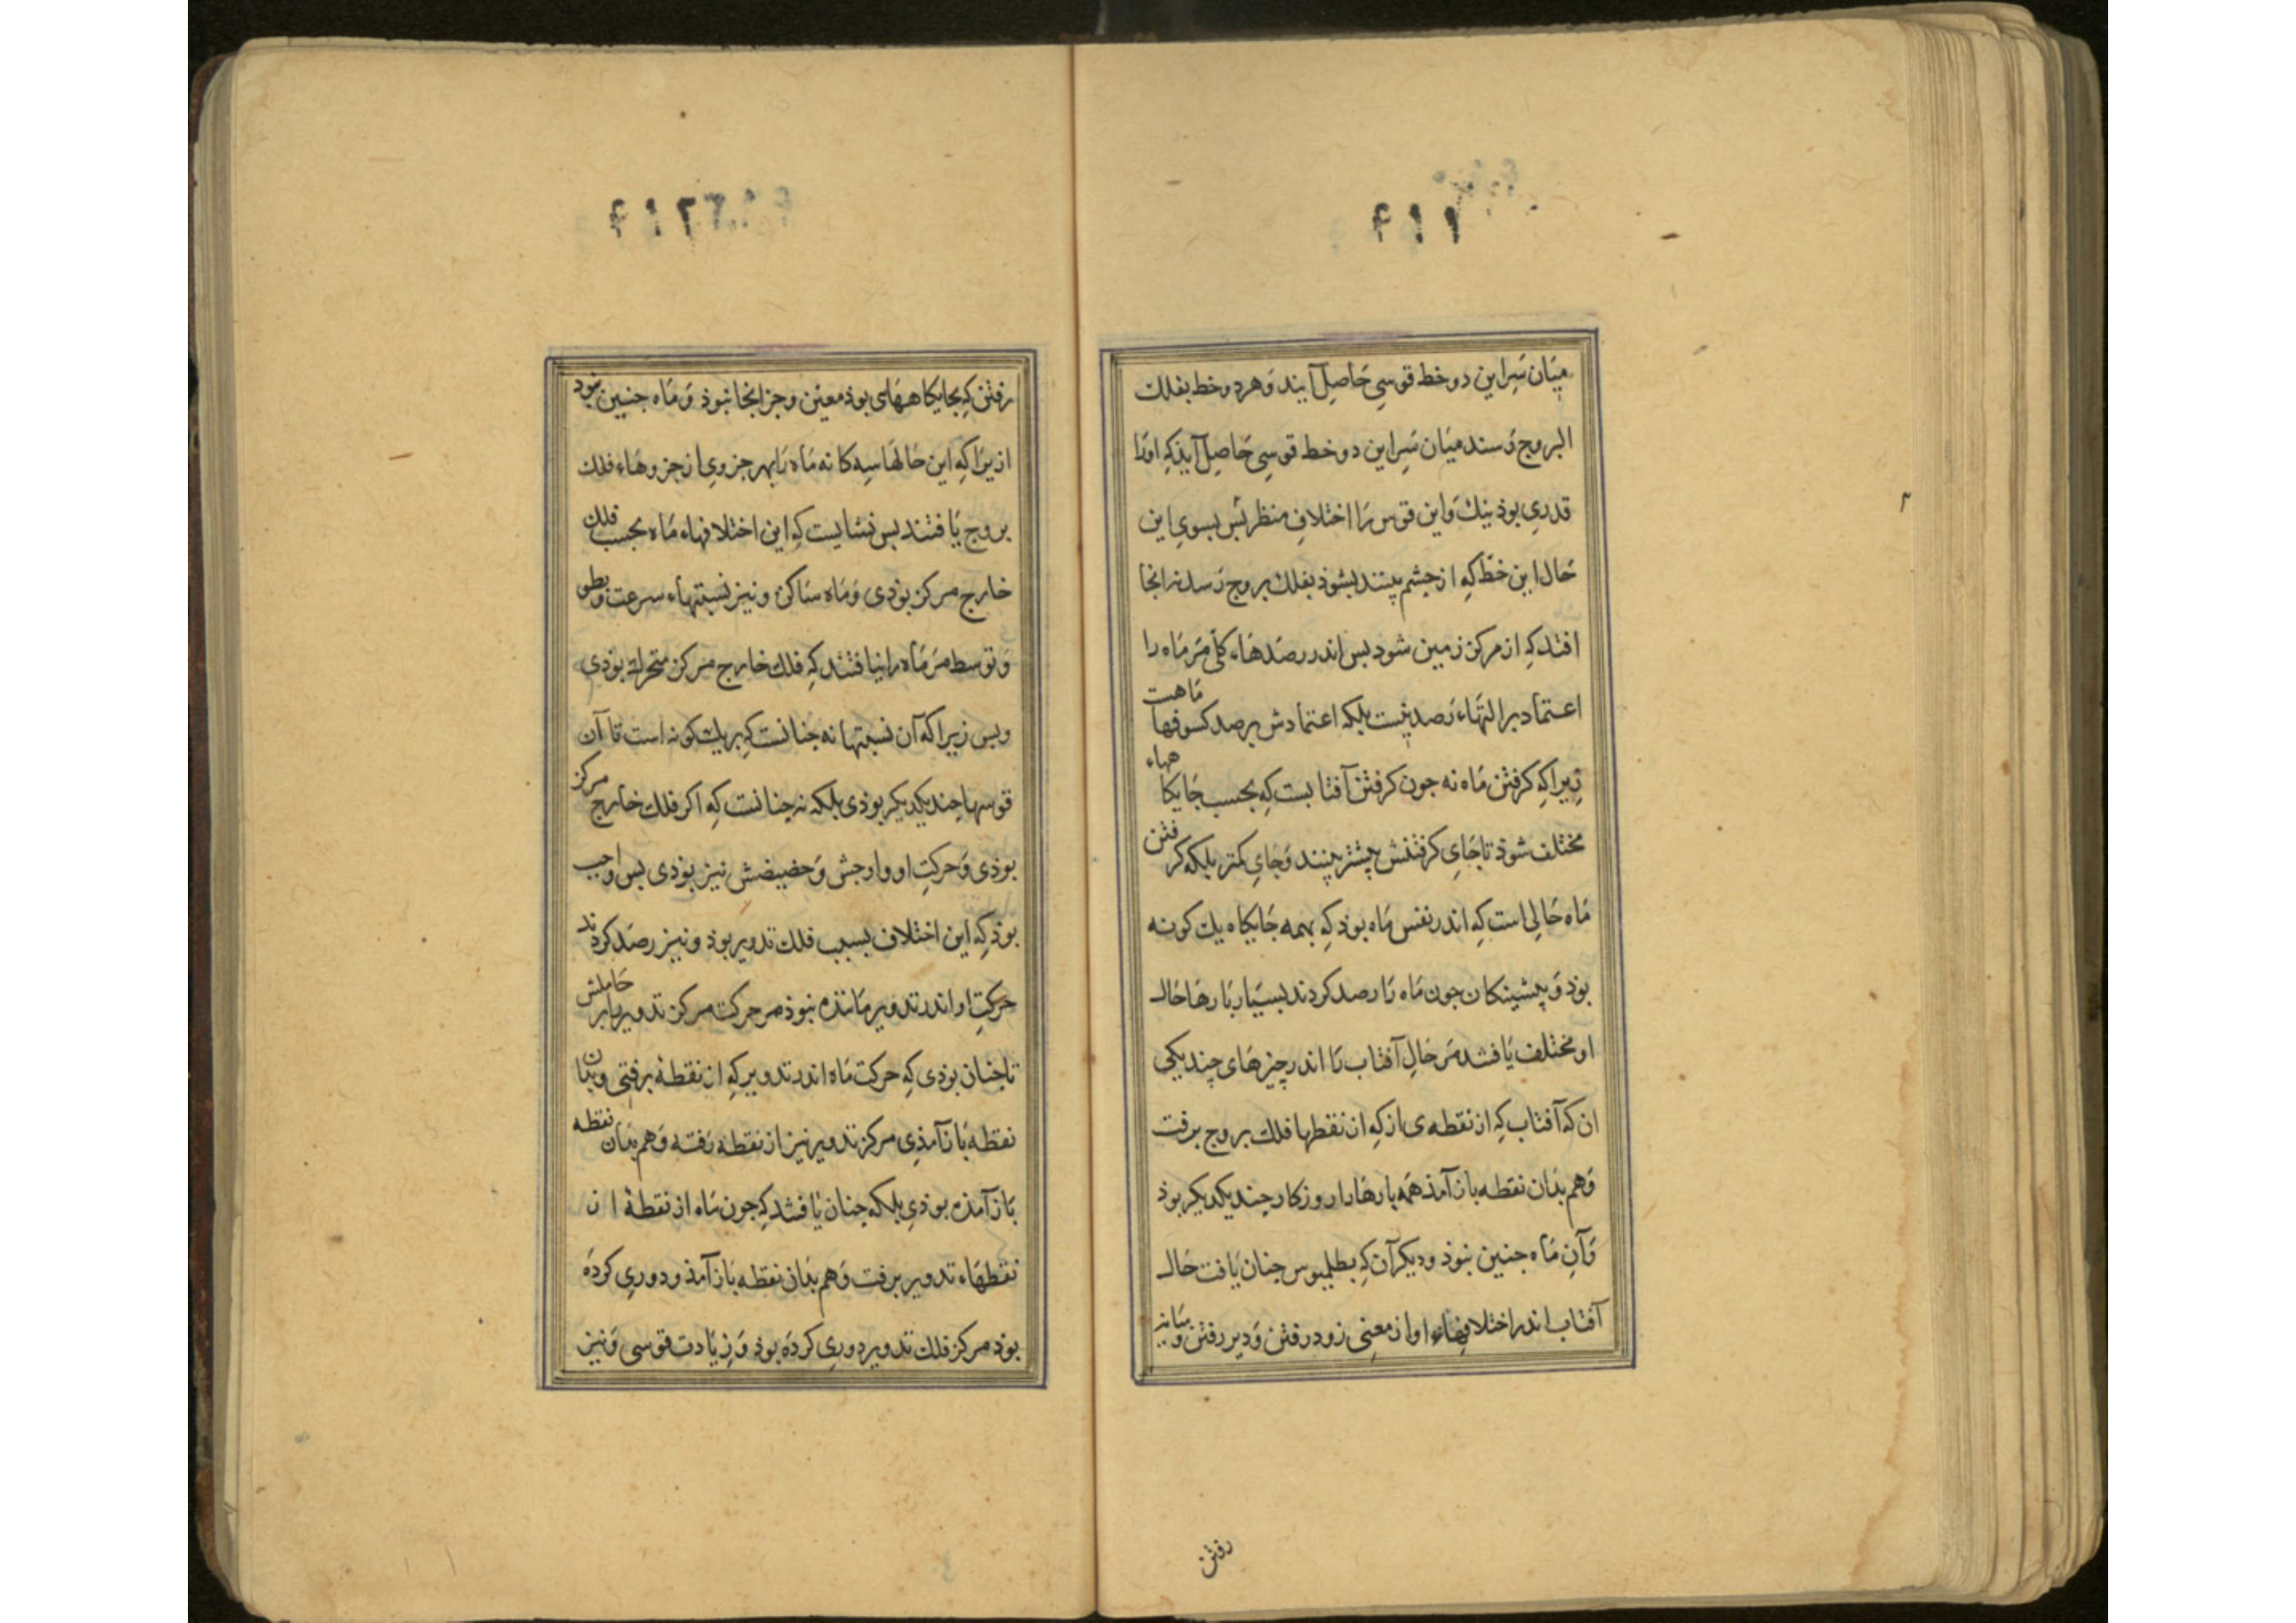 ۹۱۱
میان سر این دو خط قوسی حاصل آیند و هر دو خط بفلك
البروج رسند میان سر این دو خط قوسی حاصل آیذ که اورا
قدری بوذ نیك و این قوس را اختلاف منظر بس بسوی این
حال این خط که از جشم بینند بشوذ بفلك بروج رسد نه انجا
افتد که از مرکز زمین شود بس اندر رصدهاء کلی مر ماه را
اعتماد بر التهاء رصد نیست بلکه اعتمادش برصد کسوفها ماهست
زیرا که کرفتن ماه نه جون کرفتن آفتابست که بحسب جایکا ههاء
مختلف شوذ تا جای کرفتنش بیشتر بینند و جای کمتر بلکه کرفتن
ماه حالی است که اندر نفس ماه بوذ که بهمه جایکاه یك کونه
بوذ و بیشینکان جون ماه را رصد کردند بسیار بارها حال
او مختلف یافتند مر حال آفتاب را اندر چیزهای چند یکی
ان که آفتاب که از نقطه ی از که از نقطها فلك بروج برفت
و هم بذان نقطه باز آمذ همه بارها را روزکار جند یکدیکر بوذ
و آن ماه جنین نبوذ و دیکر آن که بطلمیوس جنان یافت حال
آفتاب اندر اختلافهاء او از معنی زود رفتن و دیر رفتن و میانه
رفتن
۹۱۲
رفتن که بجایکاههای بوذ معین و جز انجا نبوذ و ماه جنین نبود
ازیرا که این حالها سه کانه ماه را بهر جزوی از جزوهاء فلك
بروج یافتند بس نشایست که این اختلافهاء ماه بحسب فلك
خارج مرکز بوذی و ماه ساکن و نیز نسبتهاء سرعت و بطو
و توسط مر ماه را نیافتند که فلك خارج مرکز متحرك بوذی
و بس زیرا که آن نسبتها نه جنانست که بر یك کونه است تا آن
قوسها جند یکدیکر بوذی بلکه نه جنانست که اکر فلك خارج مرکز
بوذی و حرکت او و اوجش و حضیضش نیز بوذی بس واجب
بوذ که این اختلاف بسبب فلك تدویر بوذ و نیز رصد کردند
حرکت او اندر تدویر مانندهٔ نبوذ مر حرکت مرکز تدویر را بر حاملش
تا جنان بوذی که حرکت ماه اندر تدویر که از نقطهٔ برفتی و بذان
نقطه باز آمذی مرکز تدویر نیز از نقطه رفته و هم بذان نقطه
باز آمذه بوذی بلکه جنان یافتند که جون ماه از نقطهٔ ان
نقطهاء تدویر برفت و هم بذان نقطه باز آمذ و دوری کرده
بوذ مرکز فلك تدویر دوری کرده بوذ و زیادت قوسی و نیز